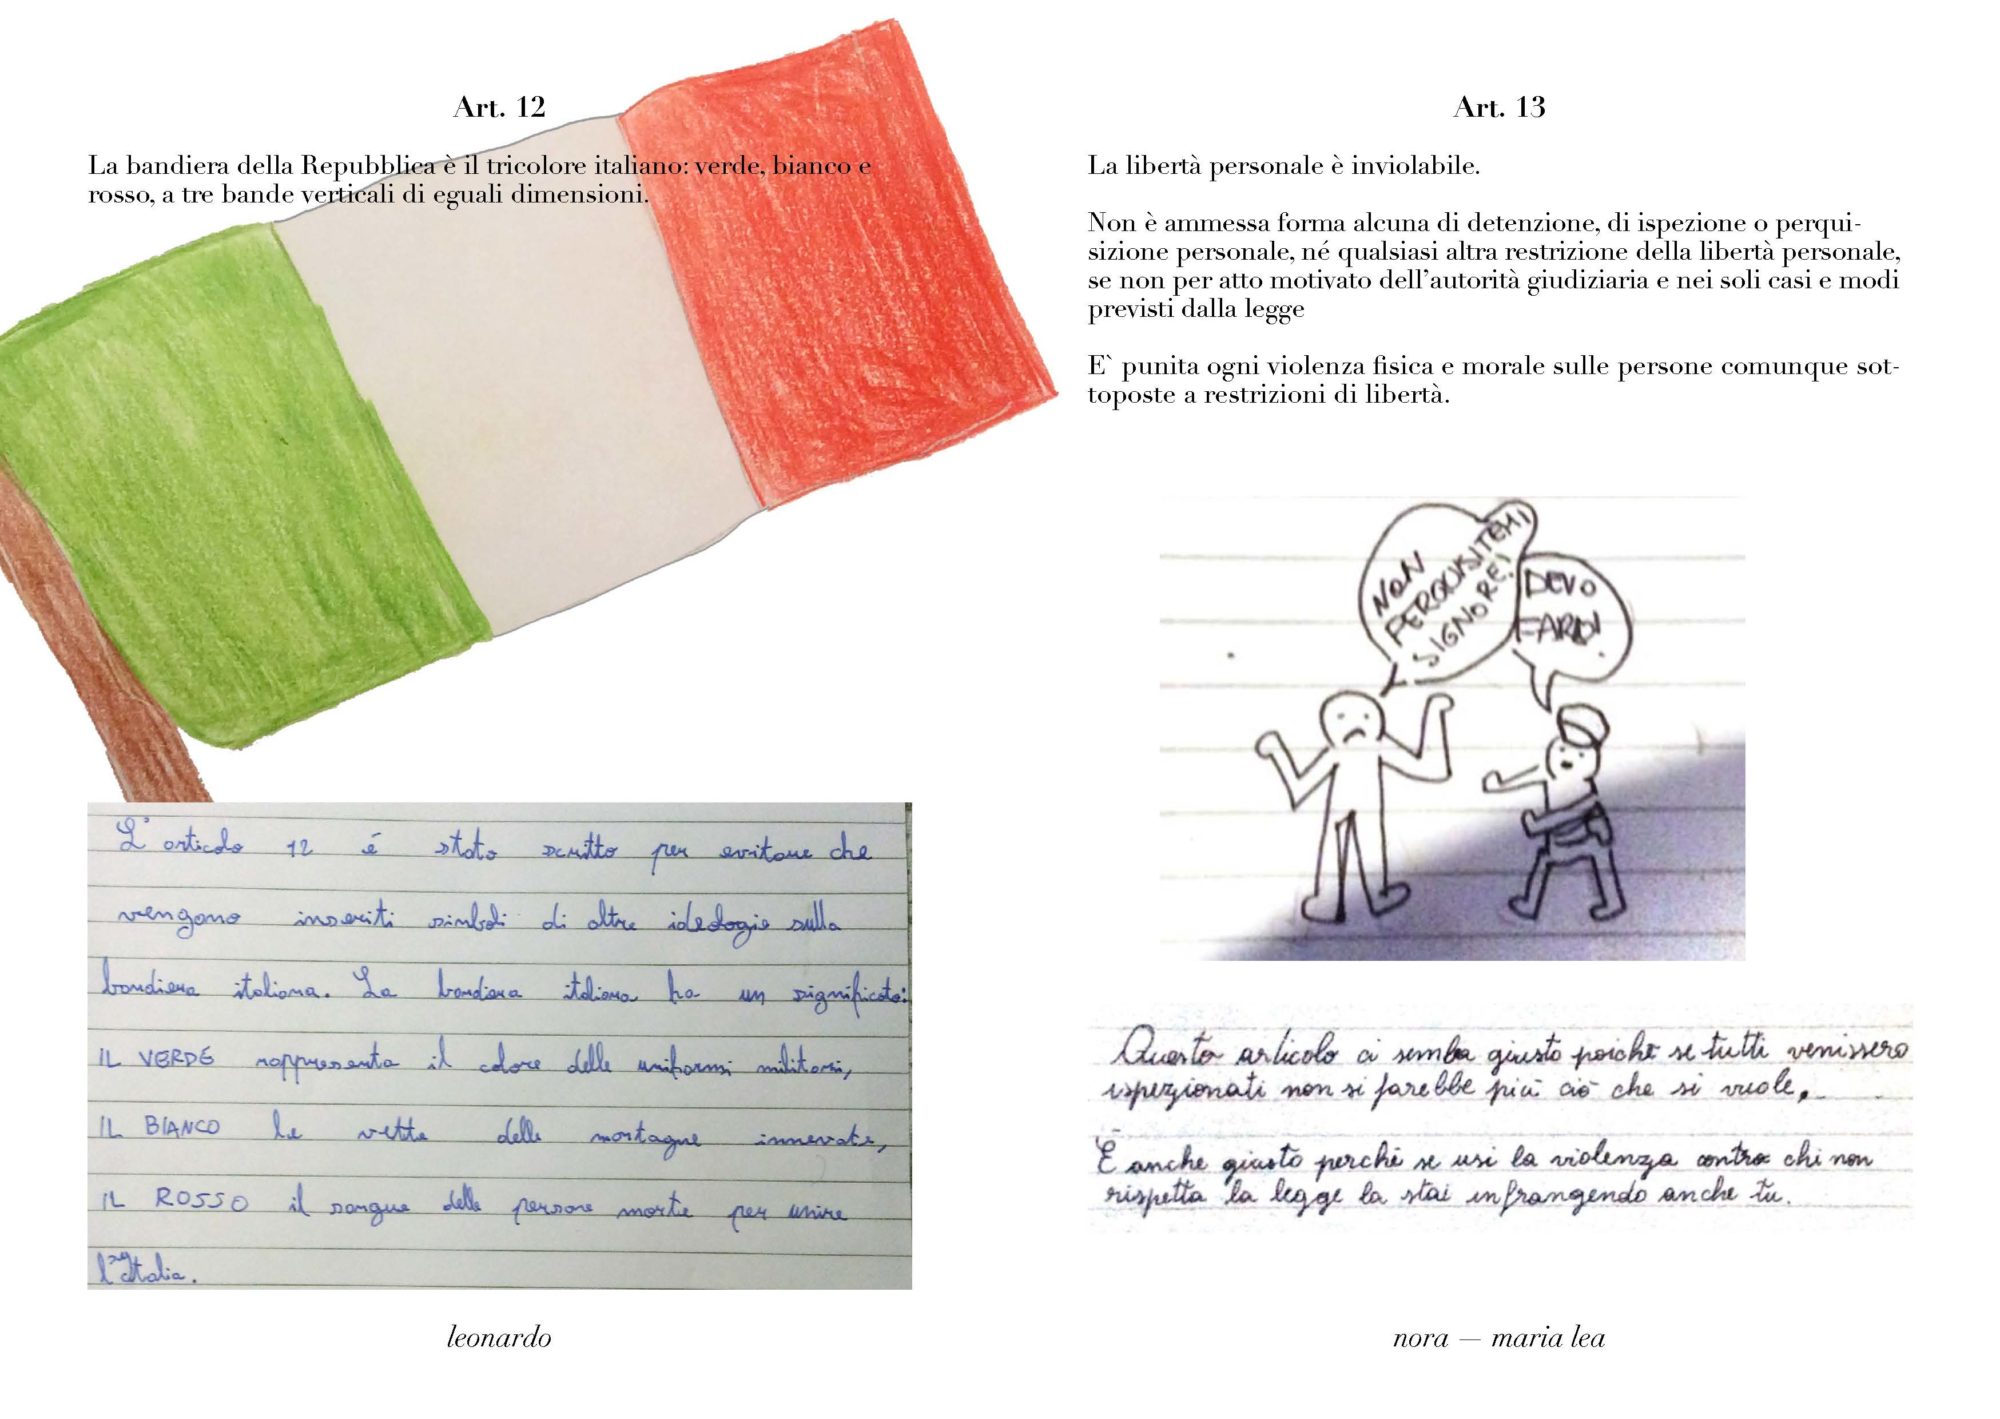 Art. 12
La bandiera della Repubblica è il tricolore italiano: verde, bianco e
rosso, a tre bande verticali di eguali dimensioni.
L'articolo 12 é stato scritto per evitare che
vengono inseriti simboli di altre ideologie sulla
bandiera italiana. La bandiera italiana ha un significato:
IL VERDE rappresenta il colore delle uniformi militari,
IL BIANCO le vette delle montagne innevate,
IL ROSSO il sangue delle persone morte per unire
l'Italia.
leonardo
Art. 13
La libertà personale è inviolabile.
Non è ammessa forma alcuna di detenzione, di ispezione o perqui-
sizione personale, né qualsiasi altra restrizione della libertà personale,
se non per atto motivato dell'autorità giudiziaria e nei soli casi e modi
previsti dalla legge
E` punita ogni violenza fisica e morale sulle persone comunque sot-
toposte a restrizioni di libertà.
NON
PERQUISITEMI
SIGNORE!
DEVO
FARLO!
Questo articolo ci semba giusto poiché se tutti venissero
ispezionati non si farebbe più ciò che si vuole.
È anche giusto perché se usi la violenza contro chi non
rispetta la legge la stai infrangendo anche tu.
nora — maria lea